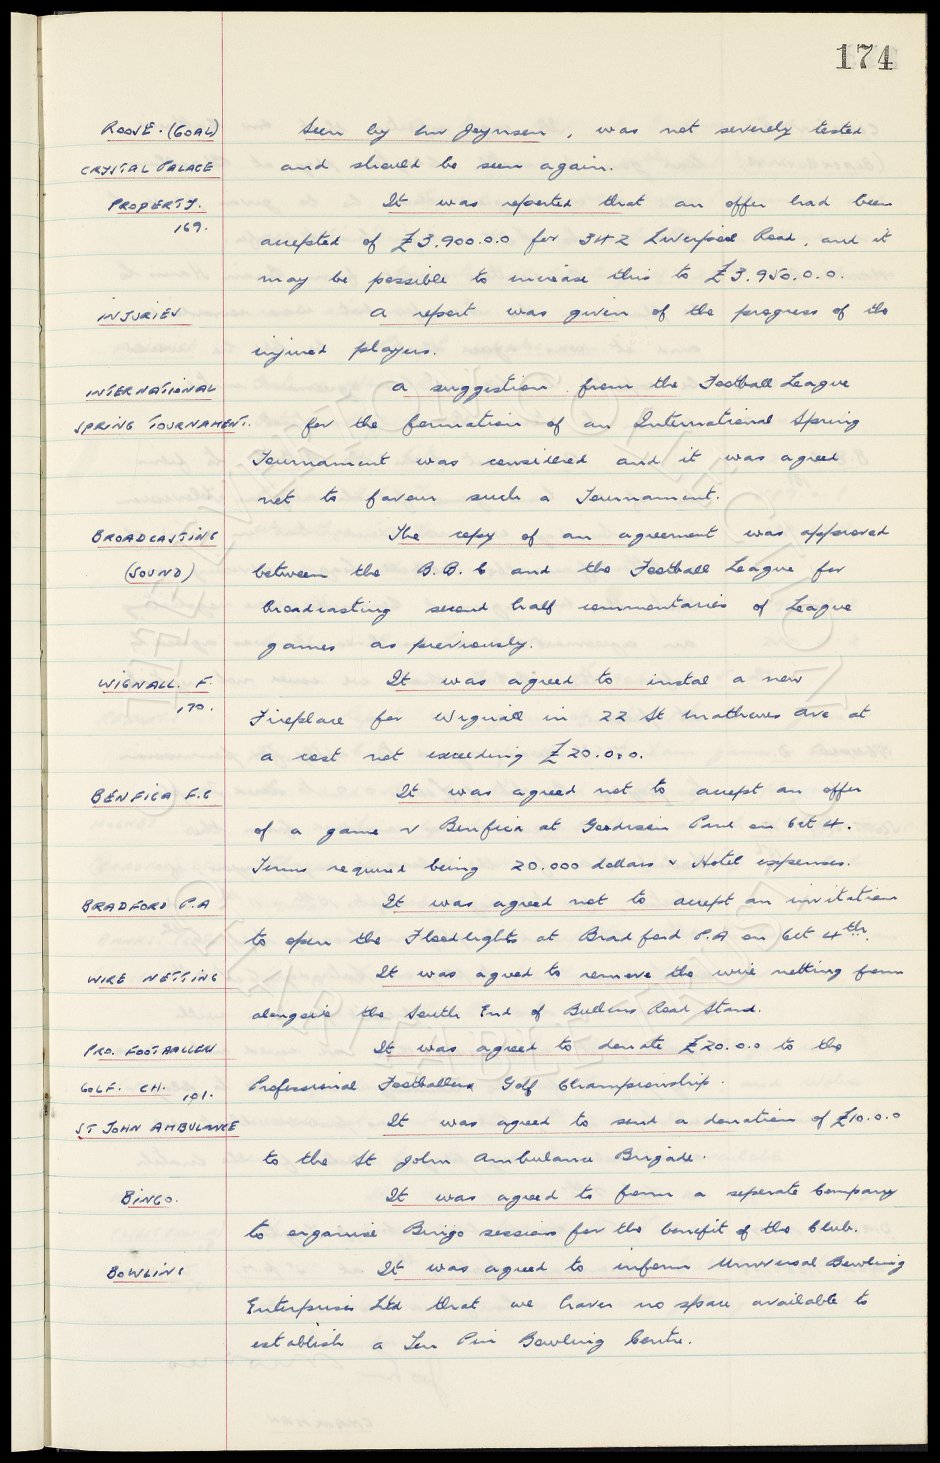 174
ROOVE. (GOAL) Seen by Mr Joynson, was not severely tested
CRYSTAL PALACE and should be seen again.
PROPERTY. It was reported that an offer had been
169. accepted of £3.900.0.0 for 342 Liverpool Road, and it
may be possible to increase this to £3.950.0.0.
INJURIES A report was given of the progress of the
injured players.
INTERNATIONAL A suggestion from the Football League
SPRING TOURNAMENT. for the formation of an International Spring
Tournament was considered and it was agreed
not to favour such a Tournament.
BROADCASTING The copy of an agreement was approved
(SOUND) between the B.B.C and the Football League for
broadcasting second half commentaries of League
games as previously.
WIGNALL. F. It was agreed to instal a new
170. Fireplace for Wignall in 22 St Mathews Ave at
a cost not exceeding £20.0.0.
BENFICA F.C It was agreed not to accept an offer
of a game v Benfica at Goodison Park on Oct 4.
Terms required being 20.000 dollars & Hotel expenses.
BRADFORD P.A It was agreed not to accept an invitation
to open the Floodlights at Bradford P.A on Oct 4th.
WIRE NETTING It was agreed to remove the wire netting from
alongside the South End of Bullens Road Stand.
PRO. FOOTBALLERS It was agreed to donate £20.0.0 to the
GOLF. CH. 101. Professional Footballers Golf Championship.
ST JOHN AMBULANCE It was agreed to send a donation of £10.0.0
to the St John Ambulance Brigade.
BINGO. It was agreed to form a seperate Company
to organise Bingo sessions for the benefit of the Club.
BOWLING It was agreed to inform Universal Bowling
Enterprises Ltd that we have no space available to
establish a Ten Pin Bowling Centre.